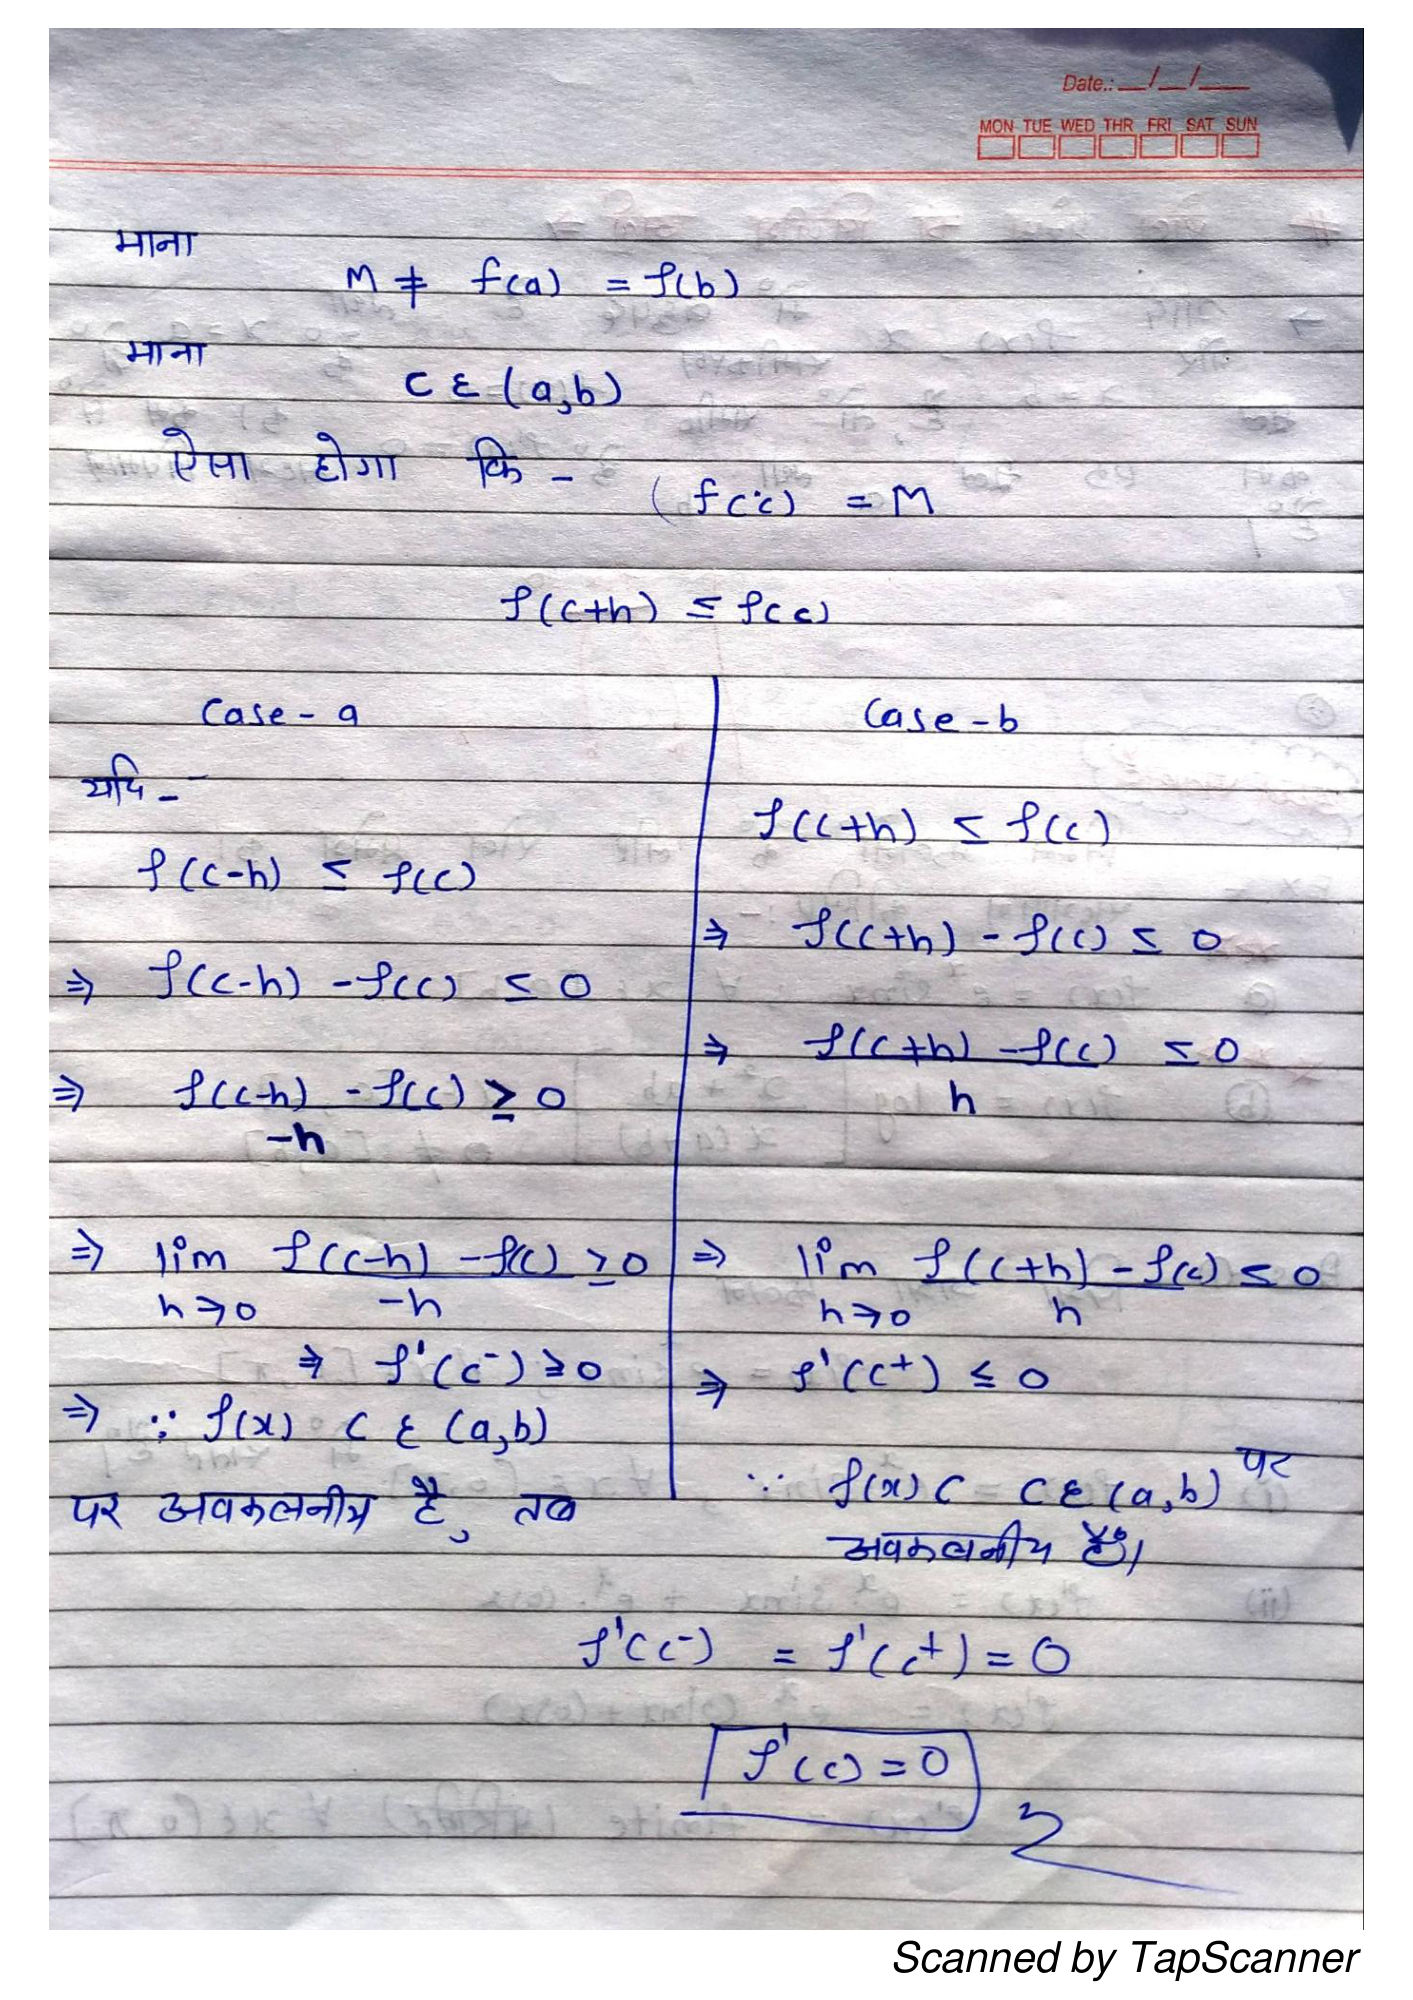 Date.: __/__/___
MON TUE WED THR FRI SAT SUN
माना
M ≠ f(a) = f(b)
माना
C ε (a,b)
ऐसा होगा कि -
(f(c) = M
f(c+h) ≤ f(c)
Case - a
यदि -
f(c-h) ≤ f(c)
⇒ f(c-h) - f(c) ≤ 0
⇒ f(c-h) - f(c) ≥ 0
-h
⇒ lim f(c-h) - f(c) ≥ 0
h→0 -h
⇒ f'(c⁻) ≥ 0
⇒ ∵ f(x) C ε (a,b)
पर अवकलनीय है, तब
Case - b
f(c+h) ≤ f(c)
⇒ f(c+h) - f(c) ≤ 0
⇒ f(c+h) - f(c) ≤ 0
h
⇒ lim f(c+h) - f(c) ≤ 0
h→0 h
⇒ f'(c⁺) ≤ 0
∵ f(x) C C ε (a,b) पर
अवकलनीय है।
f'(c⁻) = f'(c⁺) = 0
f'(c) = 0
Scanned by TapScanner